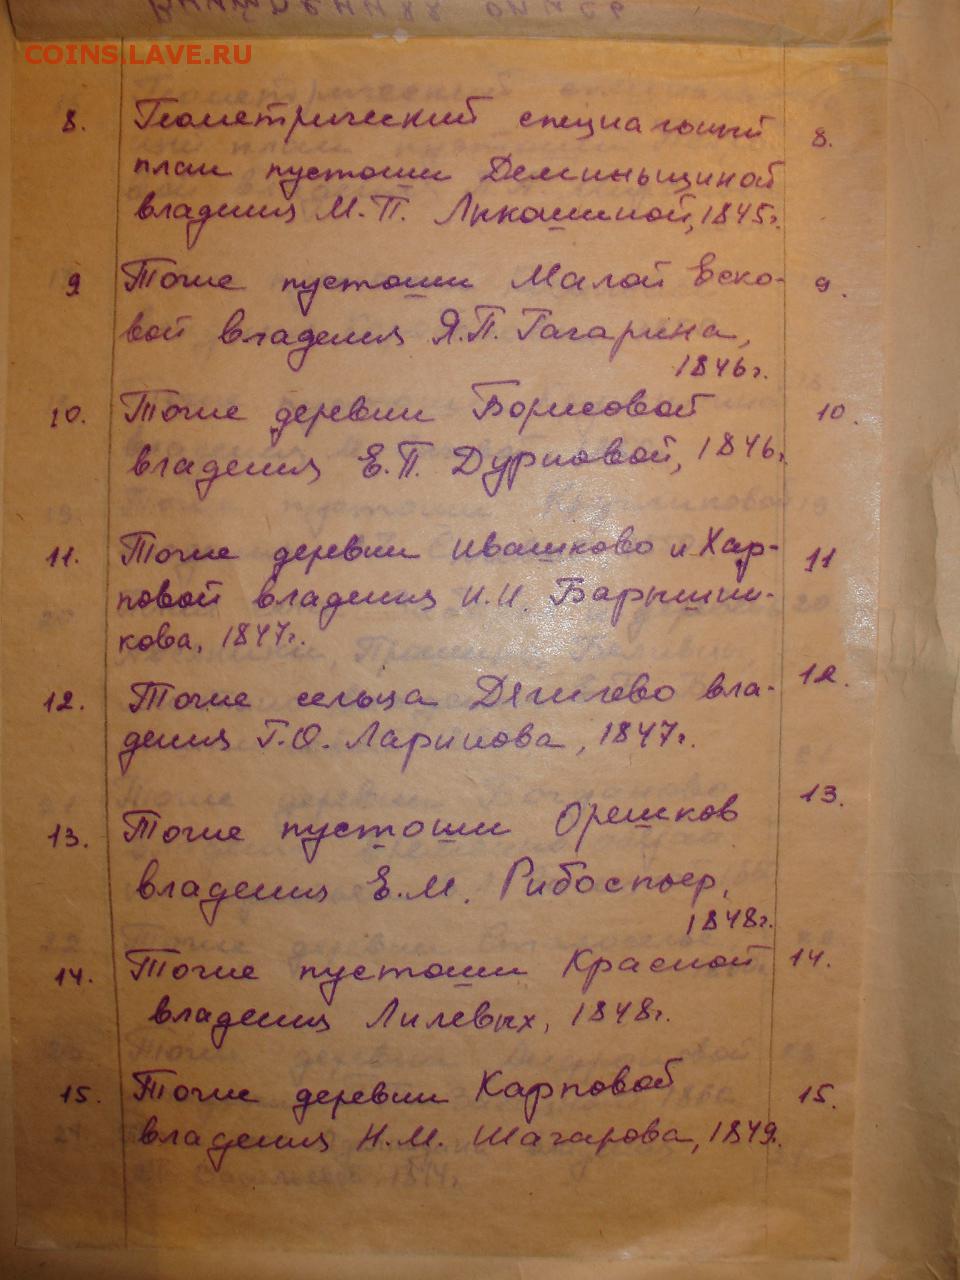 Внутренняя опись
COINS.LAVE.RU
8. Геометрический специальный 8.
план пустоши Деминьщиной
владения М.П. Лукашиной, 1845г.
9 Тоже пустоши Малой Вско- 9.
вой владения Я.П. Гагарина,
1846г.
10. Тоже деревни Борисовой 10.
владения Е.П. Дурновой, 1846г.
11. Тоже деревни Ивашково и Кар- 11
повой владения И.И. Барышни-
кова, 1847г.
12. Тоже сельца Дягилево вла- 12.
дения Г.О. Ларинова, 1847г.
13. Тоже пустоши Орешков 13.
владения Е.М. Рибоспьер,
1848г.
14. Тоже пустоши Красной 14.
владения Лилевых, 1848г.
15. Тоже деревни Карповой 15.
владения Н.М. Шагарова, 1849.